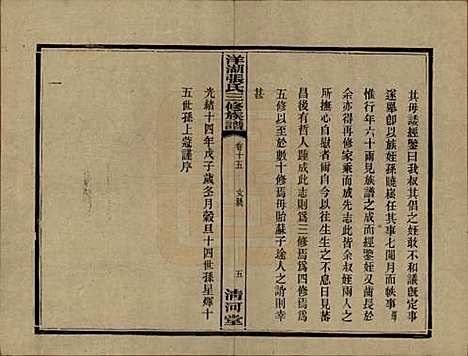 其毋諉經鑒曰我叔其倡之姪敢不和議旣定事
遂舉卽以族姪孫曉樁任其事七閱月而帙事
惟行年六十兩見族譜之成而經鑒姪又齒長於
余亦能再修家乘而成先志此皆余叔姪兩人之
所共以自慰者爾自今以往生生之不息日見蕃
昌後有哲人踵成此志則爲三修焉爲四修焉爲
五修以至於數十修焉毋貽蘇子途人之誚則幸
甚
光緒十四年戊子歲冬月穀旦十四世孫星煇十
五世孫上蔻謹序
洋湖張氏三修族譜
卷十五
文藝
五
清河堂